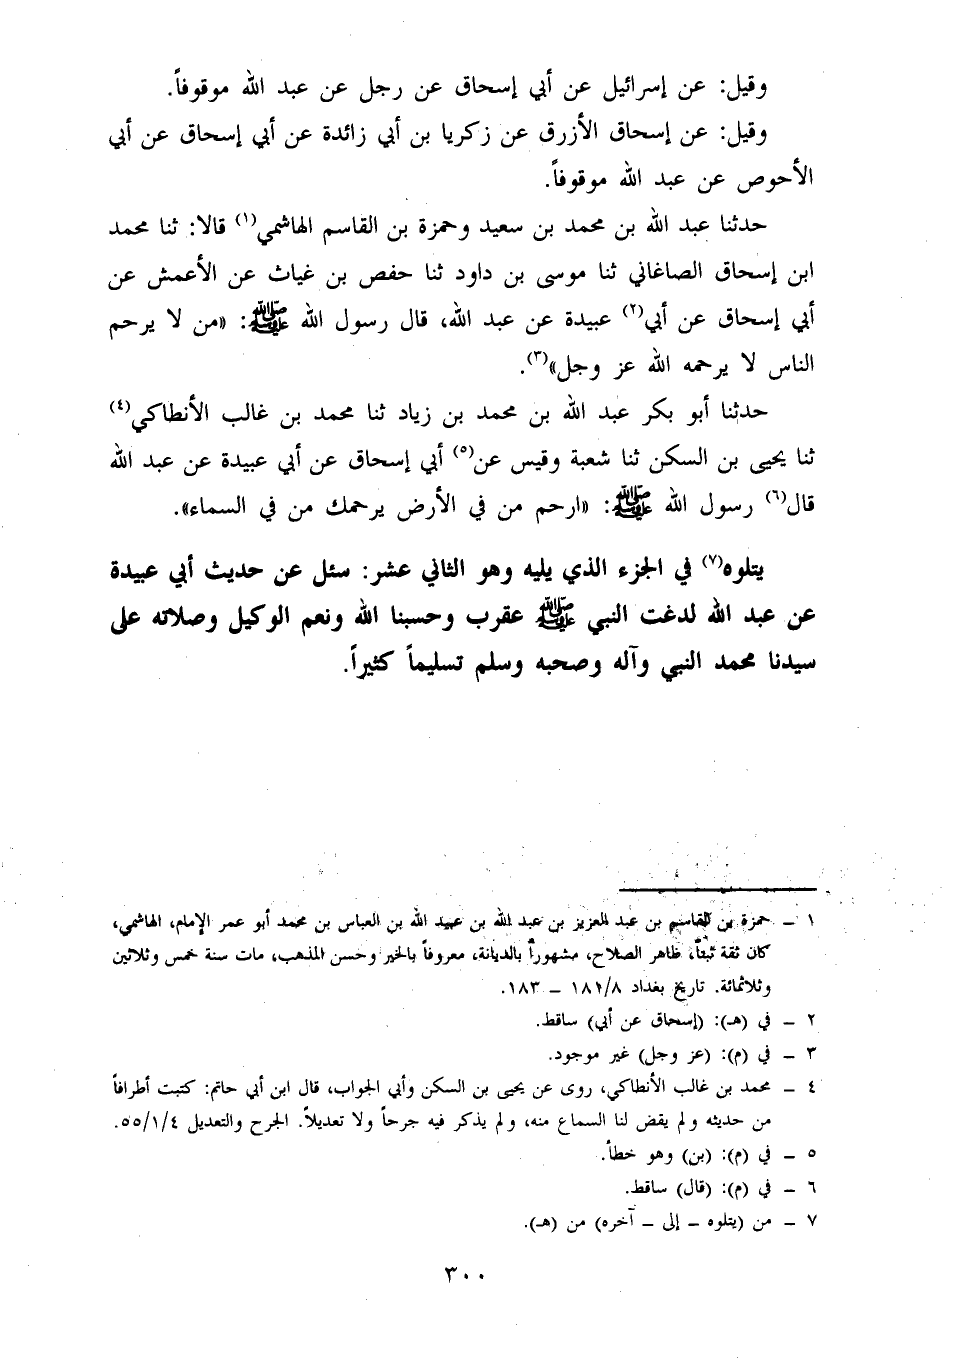 وقيل: عن إسرائيل عن أبي إسحاق عن رجل عن عبد الله موقوفاً.
وقيل: عن إسحاق الأزرق عن زكريا بن أبي زائدة عن أبي إسحاق عن أبي
الأحوص عن عبد الله موقوفاً.
حدثنا عبد الله بن محمد بن سعيد وحمزة بن القاسم الهاشمي(١) قالا: ثنا محمد
ابن إسحاق الصاغاني ثنا موسى بن داود ثنا حفص بن غياث عن الأعمش عن
أبي إسحاق عن أبي(٢) عبيدة عن عبد الله، قال رسول الله ﷺ: «من لا يرحم
الناس لا يرحمه الله عز وجل»(٣).
حدثنا أبو بكر عبد الله بن محمد بن زياد ثنا محمد بن غالب الأنطاكي(٤)
ثنا يحيى بن السكن ثنا شعبة وقيس عن(٥) أبي إسحاق عن أبي عبيدة عن عبد الله
قال(٦) رسول الله ﷺ: «ارحم من في الأرض يرحمك من في السماء».
يتلوه(٧) في الجزء الذي يليه وهو الثاني عشر: سئل عن حديث أبي عبيدة
عن عبد الله لدغت النبي ﷺ عقرب وحسبنا الله ونعم الوكيل وصلاته على
سيدنا محمد النبي وآله وصحبه وسلم تسليماً كثيراً.
١ – حمزة بن القاسم بن عبد العزيز بن عبد الله بن عبيد الله بن العباس بن محمد أبو عمر الإمام، الهاشمي،
كان ثقة ثبتاً، ظاهر الصلاح، مشهوراً بالديانة، معروفاً بالخير وحسن المذهب، مات سنة خمس وثلاثين
وثلاثمائة. تاريخ بغداد ١٨١/٨ – ١٨٣.
٢ – في (هـ): (إسحاق عن أبي) ساقط.
٣ – في (م): (عز وجل) غير موجود.
٤ – محمد بن غالب الأنطاكي، روى عن يحيى بن السكن وأبي الجواب، قال ابن أبي حاتم: كتبت أطرافاً
من حديثه ولم يقض لنا السماع منه، ولم يذكر فيه جرحاً ولا تعديلاً. الجرح والتعديل ٥٥/١/٤.
٥ – في (م): (بن) وهو خطأ.
٦ – في (م): (قال) ساقط.
٧ – من (يتلوه – إلى – آخره) من (هـ).
٣٠٠